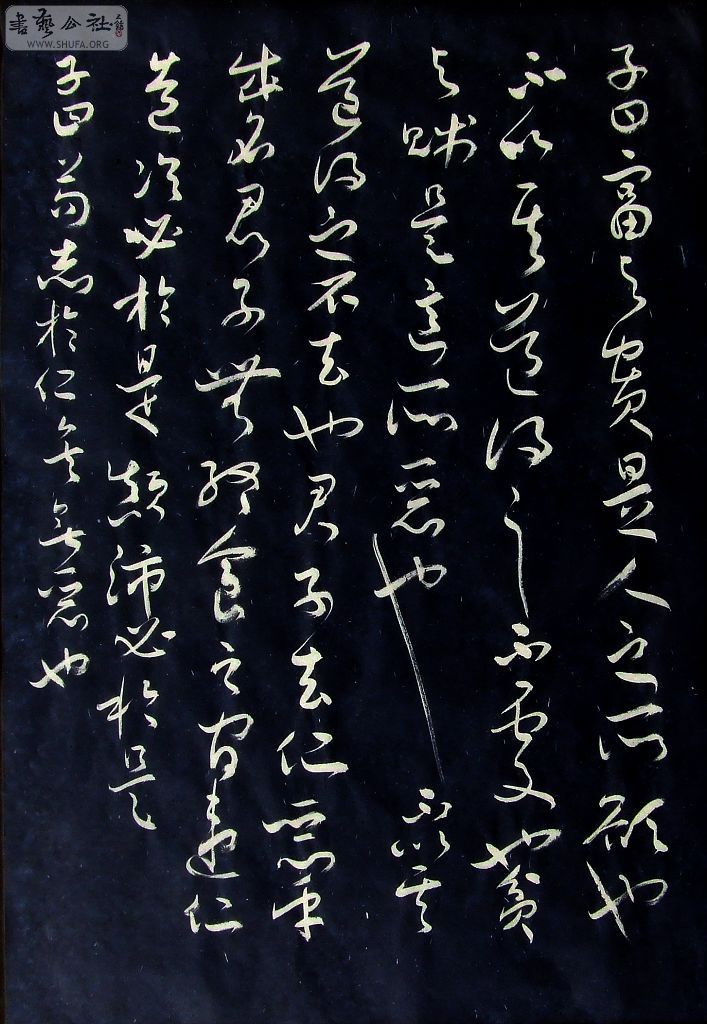 書藝公社
WWW.SHUFA.ORG
子曰富与貴是人之所欲也
不以其道得之不處也貧
与賤是人之所惡也不以其
道得之不去也君子去仁惡乎
成名君子無終食之間違仁
造次必於是顛沛必於是
子曰苟志於仁矣無惡也